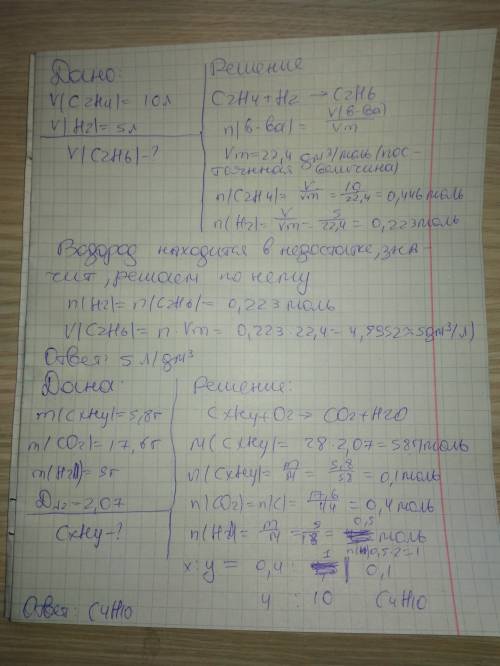 Дано:
V(C2H4)= 10л
V(H2)= 5л
V(C2H6)-?
Решение
C2H4+H2 → C2H6
n(в-ва)= V(в-ва)/Vm
Vm=22,4 дм³/моль (пос-
тоянная величина)
n(C2H4)= V/Vm = 10/22,4 = 0,446 моль
n(H2)= V/Vm = 5/22,4 = 0,223 моль
Водород находится в недостатке, зна-
чит, решаем по нему
n(H2)= n(C2H6)= 0,223 моль
V(C2H6)= n·Vm= 0,223·22,4= 4,9952≈5дм³/л)
Ответ: 5 л/дм³
Дана:
m(CxHy)=5,8г
m(CO2)=17,6г
m(H2)= 5г
=2,07
CxHy-?
Решение:
CxHy+O2→ CO2+H2O
M(CxHy)= 28·2,07=58г/моль
n(CxHy)= m/M = 5,8/58 = 0,1моль
n(CO2)=n(C)= 17,6/44 = 0,4моль
n(H)= m/M = 5/18 = 0,5 моль
n(H)0,5·2=1
x:y = 0,4 : 1 | 0,1
4 : 10 C4H10
Ответ: C4H10